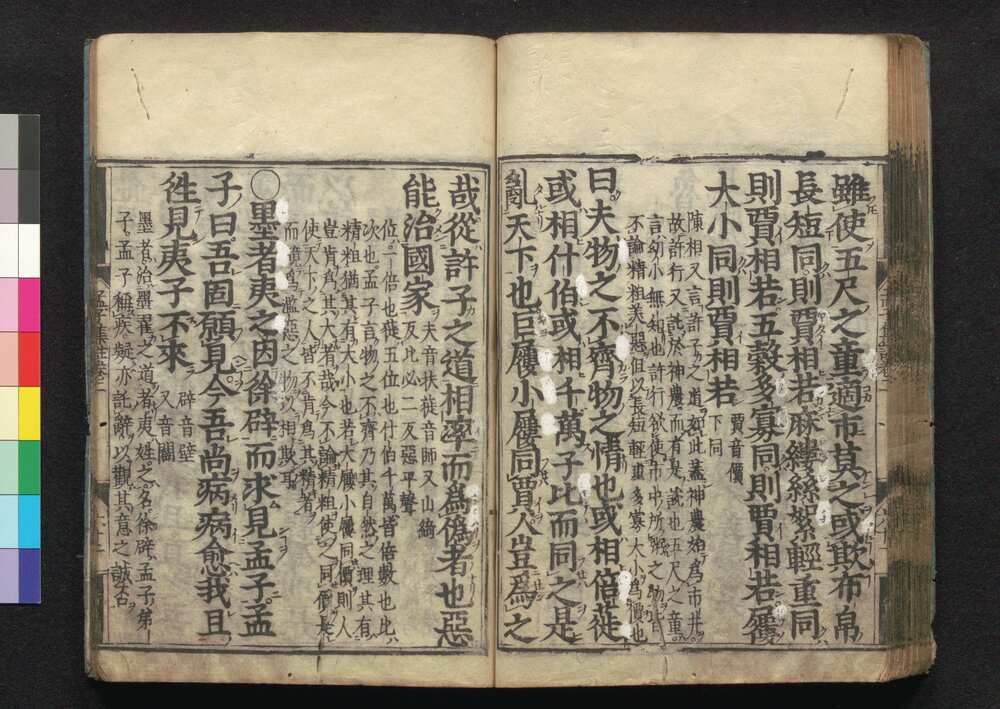 雖使五尺之童適市莫之或欺布帛
長短同則賈相若麻縷絲絮輕重同
則賈相若五穀多寡同則賈相若屨
大小同則賈相若
賈音價
下同
陳相又言許子之道如此蓋神農始為市井
故許行又託於神農而有是說也五尺之童
言幼小無知也許行欲使市中所粥之物皆
不論精粗美惡但以長短輕重多寡大小為價也
曰夫物之不齊物之情也或相倍蓰
或相什伯或相千萬子比而同之是
亂天下也巨屨小屨同賈人豈為之
哉從許子之道相率而為偽者也惡
能治國家
夫音扶蓰音師又山綺
反比必二反惡平聲
倍一倍也蓰五倍也什伯千萬皆倍數也比
次也孟子言物之不齊乃其自然之理其有
精粗猶其有大小也若大屨小屨同價則人
豈肯為其大者哉今不論精粗使之同價是
使天下之人皆不肯為其精者
而競為濫惡之物以相欺耳
○墨者夷之因徐辟而求見孟子孟
子曰吾固願見今吾尚病病愈我且
徃見夷子不來
辟音壁
又音闢
墨者治墨翟之道者夷姓之名徐辟孟子弟
子孟子稱疾疑亦託辭以觀其意之誠否